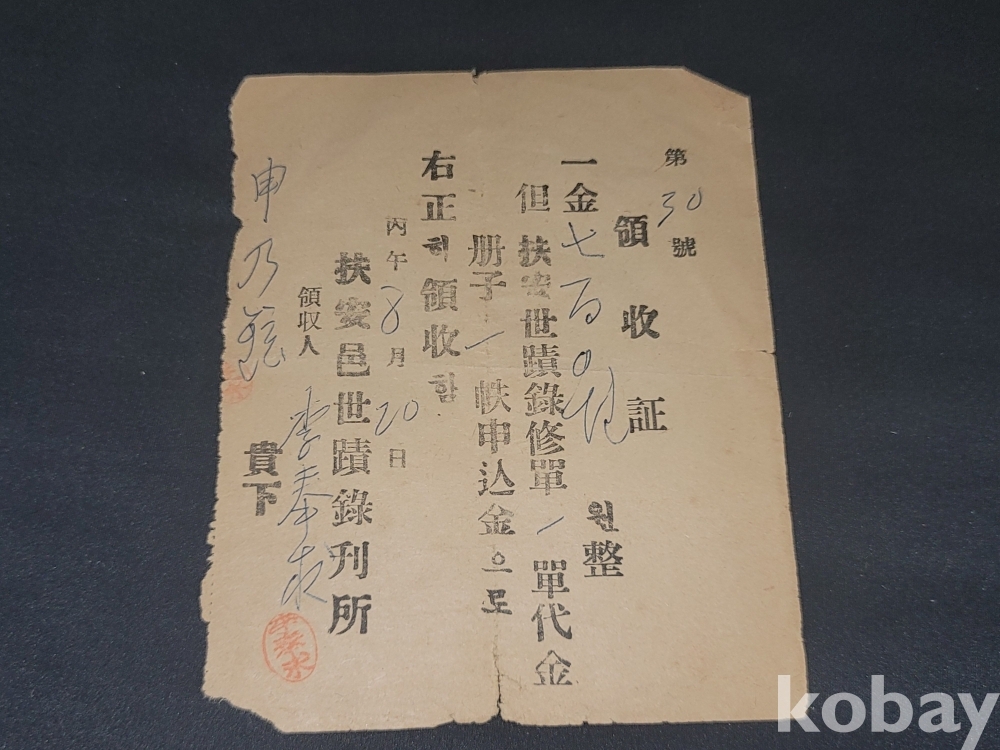 第 30 號
領收証
一金 七百 원整
但 扶安世蹟錄修單 一 單代金
册子 一 帙申込金으로
右正히領收함
丙午 8月 20日
扶安邑世蹟錄刊所
領収人 李奉水
申乃 貴下
李奉水
kobay